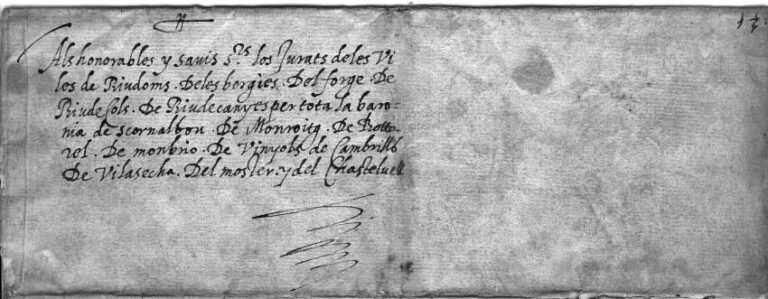 Als honorables y savis s.rs los Jurats de les Vi
les de Riudoms. Deles borgies. Del forge. De
Riudecols. De Riudecanyes per tota la baro-
nia de scornalbou. De Monroitg. De Botta-
rel. De monbrio. De Vinyols de Cambrills
De Vilasecha. Del moster. y del Chastelvell